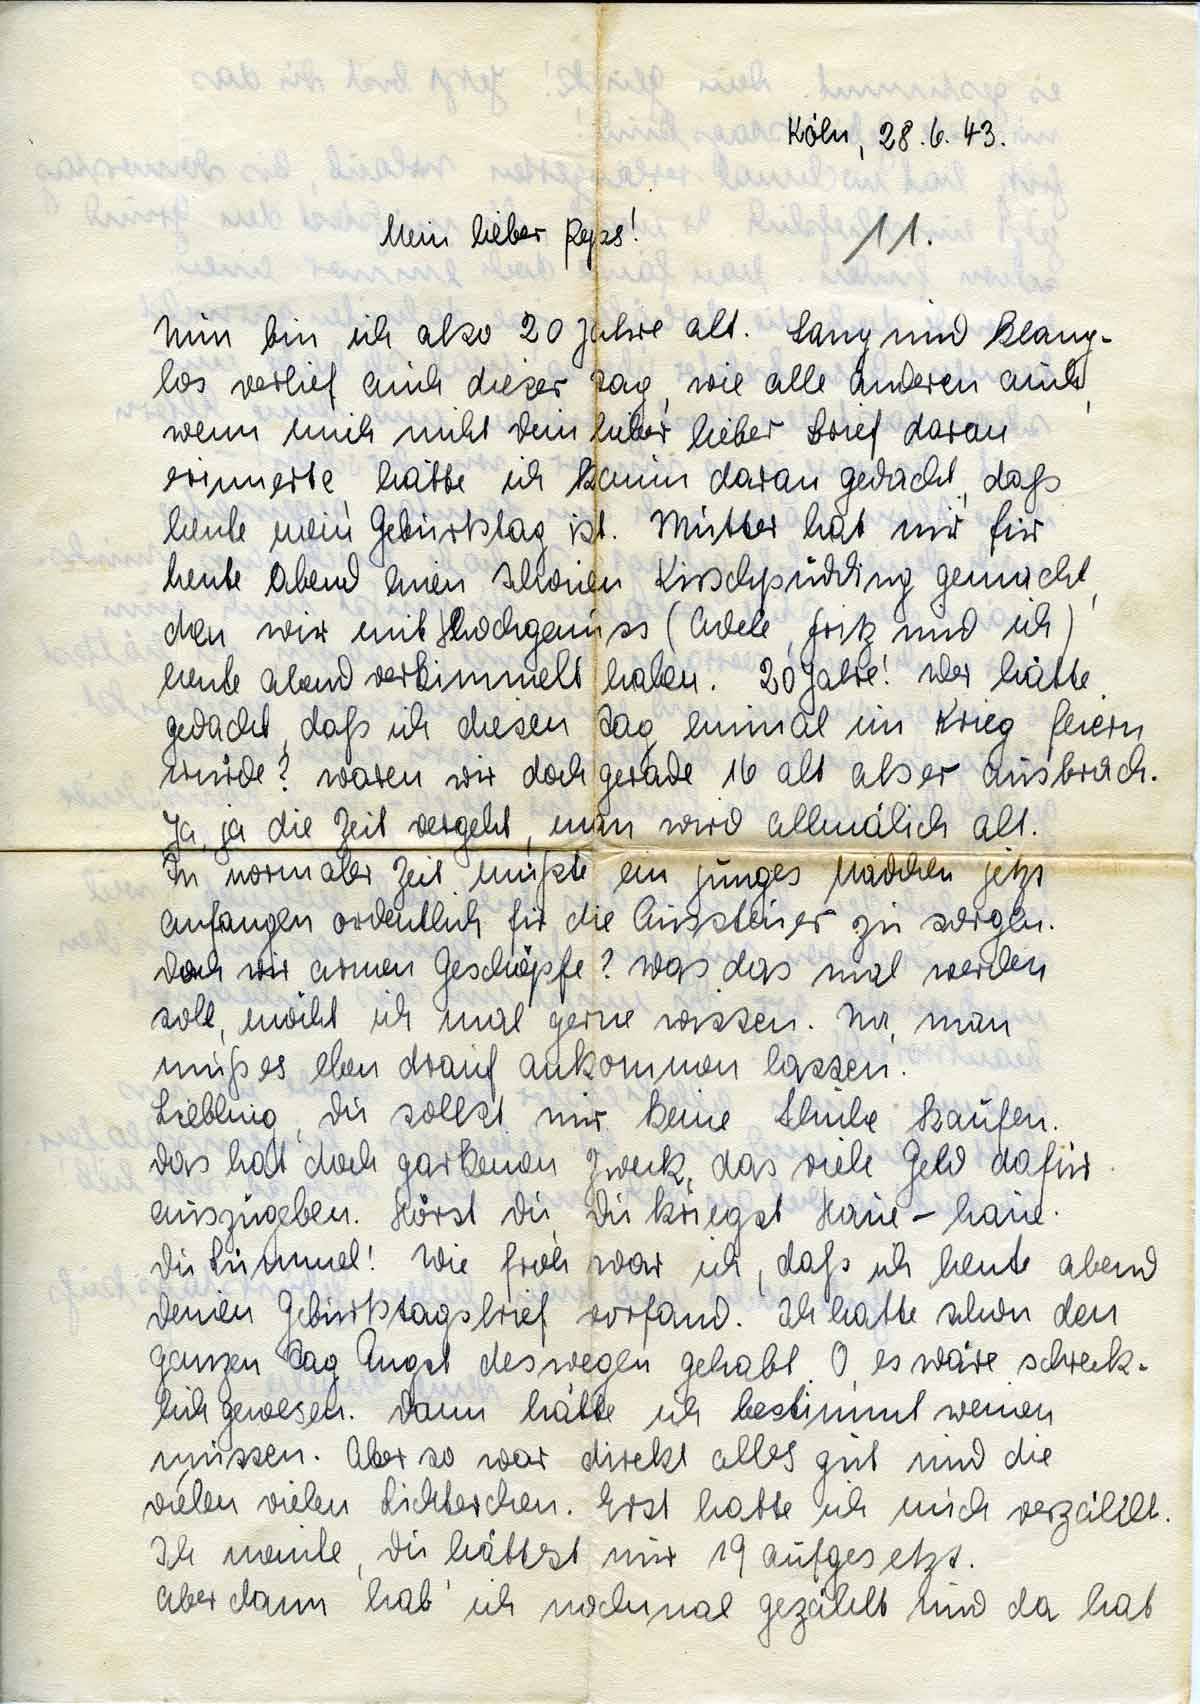 Köln, 28.6.43.
Mein lieber Reps!
11.
Nun bin ich also 20 Jahre alt. Sang und Klang-
los verlief auch dieser Tag, wie alle anderen auch,
wenn mich nicht Dein lieber lieber Brief daran
erinnerte, hätte ich kaum daran gedacht, daß
heute mein Geburtstag ist. Mutter hat mir für
heute Abend einen schönen Kirschpudding gemacht,
den wir mit Hochgenuss (Adele, Fritz und ich)
heute abend verkimmelt haben. 20 Jahre! Wer hätte
gedacht, daß ich diesen Tag einmal im Krieg feiern
würde? Waren wir doch gerade 16 alt als er ausbrach.
Ja, ja die Zeit vergeht, man wird allmälich alt.
In normaler Zeit müßte ein junges Mädchen jetzt
anfangen ordentlich für die Aussteuer zu sorgen.
Doch wir armen Geschöpfe? Was das mal werden
soll, möcht ich mal gerne wissen. Na, man
muß es eben drauf ankommen lassen.
Liebling, Du sollst mir keine Schuhe kaufen.
Das hat doch garkenen Zweck, das viele Geld dafür
auszugeben. Hörst Du, Du kriegst Haue-haue.
Du Lümmel! Wie froh war ich, daß ich heute abend
Deinen Geburtstagsbrief vorfand. Ich hatte schon den
ganzen Tag Angst deswegen gehabt. O, es wäre schreck-
lich gewesen. Dann hätte ich bestimmt weinen
müssen. Aber so war direkt alles gut und die
vielen vielen Lichterchen. Erst hatte ich mich verzählt.
Ich meinte, Du hättest nur 19 aufgesetzt.
Aber dann hab' ich nochmal gezählt und da hat